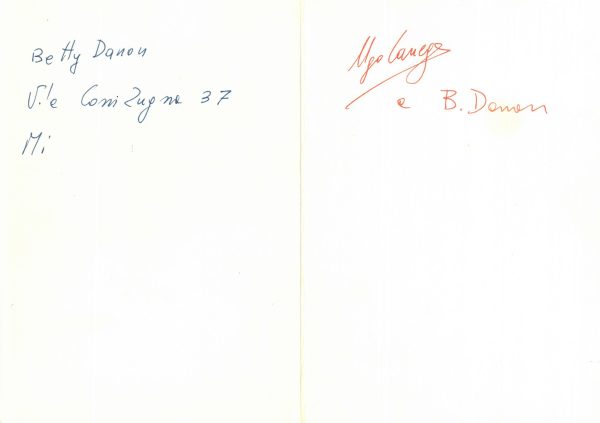 Betty Danon
V.le Coni Zugna 37
Mi
Ugo Carrega
a B. Danon